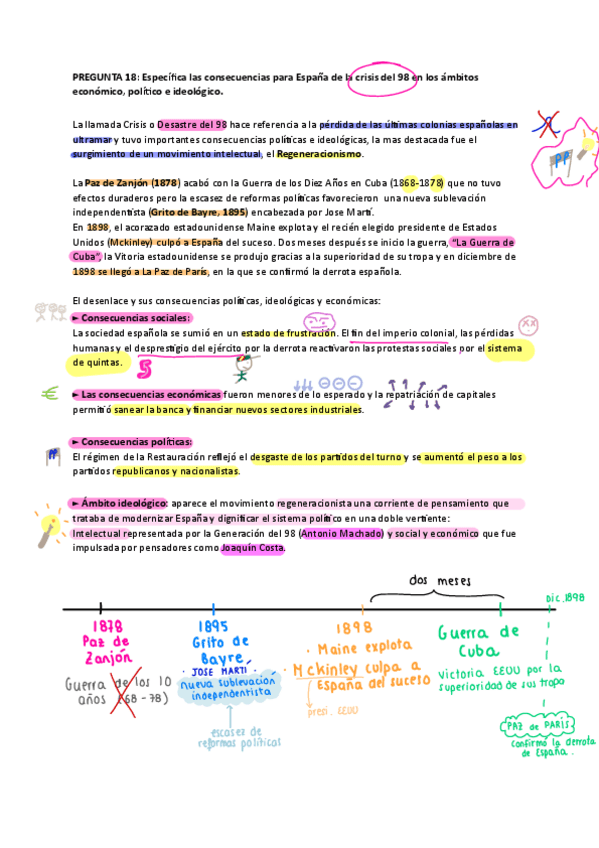 PREGUNTA 18: Específica las consecuencias para España de la crisis del 98 en los ámbitos
económico, político e ideológico.
La llamada Crisis o Desastre del 98 hace referencia a la pérdida de las últimas colonias españolas en
ultramar y tuvo importantes consecuencias políticas e ideológicas, la mas destacada fue el
surgimiento de un movimiento intelectual, el Regeneracionismo.
PP
La Paz de Zanjón (1878) acabó con la Guerra de los Diez Años en Cuba (1868-1878) que no tuvo
efectos duraderos pero la escasez de reformas políticas favorecieron una nueva sublevación
independentista (Grito de Bayre, 1895) encabezada por Jose Martí.
En 1898, el acorazado estadounidense Maine explota y el recién elegido presidente de Estados
Unidos (Mckinley) culpó a España del suceso. Dos meses después se inicio la guerra, "La Guerra de
Cuba", la Vitoria estadounidense se produjo gracias a la superioridad de su tropa y en diciembre de
1898 se llegó a La Paz de París, en la que se confirmó la derrota española.
El desenlace y sus consecuencias políticas, ideológicas y económicas:
► Consecuencias sociales:
La sociedad española se sumió en un estado de frustración. El fin del imperio colonial, las pérdidas
humanas y el desprestigio del ejército por la derrota reactivaron las protestas sociales por el sistema
de quintas.
€
► Las consecuencias económicas fueron menores de lo esperado y la repatriación de capitales
permitió sanear la banca y financiar nuevos sectores industriales.
► Consecuencias políticas:
PP
El régimen de la Restauración reflejó el desgaste de los partidos del turno y se aumentó el peso a los
partidos republicanos y nacionalistas.
► Ámbito ideológico: aparece el movimiento regeneracionista una corriente de pensamiento que
trataba de modernizar España y dignificar el sistema político en una doble vertiente:
Intelectual representada por la Generación del 98 (Antonio Machado) y social y económico que fue
impulsada por pensadores como Joaquín Costa.
dos meses
Dic.1898
1878
Paz de
Zanjón
Guerra de los 10
años (68-78)
1895
Grito de
Bayre
JOSE MARTI
nueva sublevación
independentista
escasez de
reformas políticas
1898
· Maine explota
· Mckinley culpa a
España del suceso
presi. EEUU
Guerra de
Cuba
victoria EEUU por la
superioridad de sus tropa
PAZ de PARÍS
confirmó la derrota
de España.